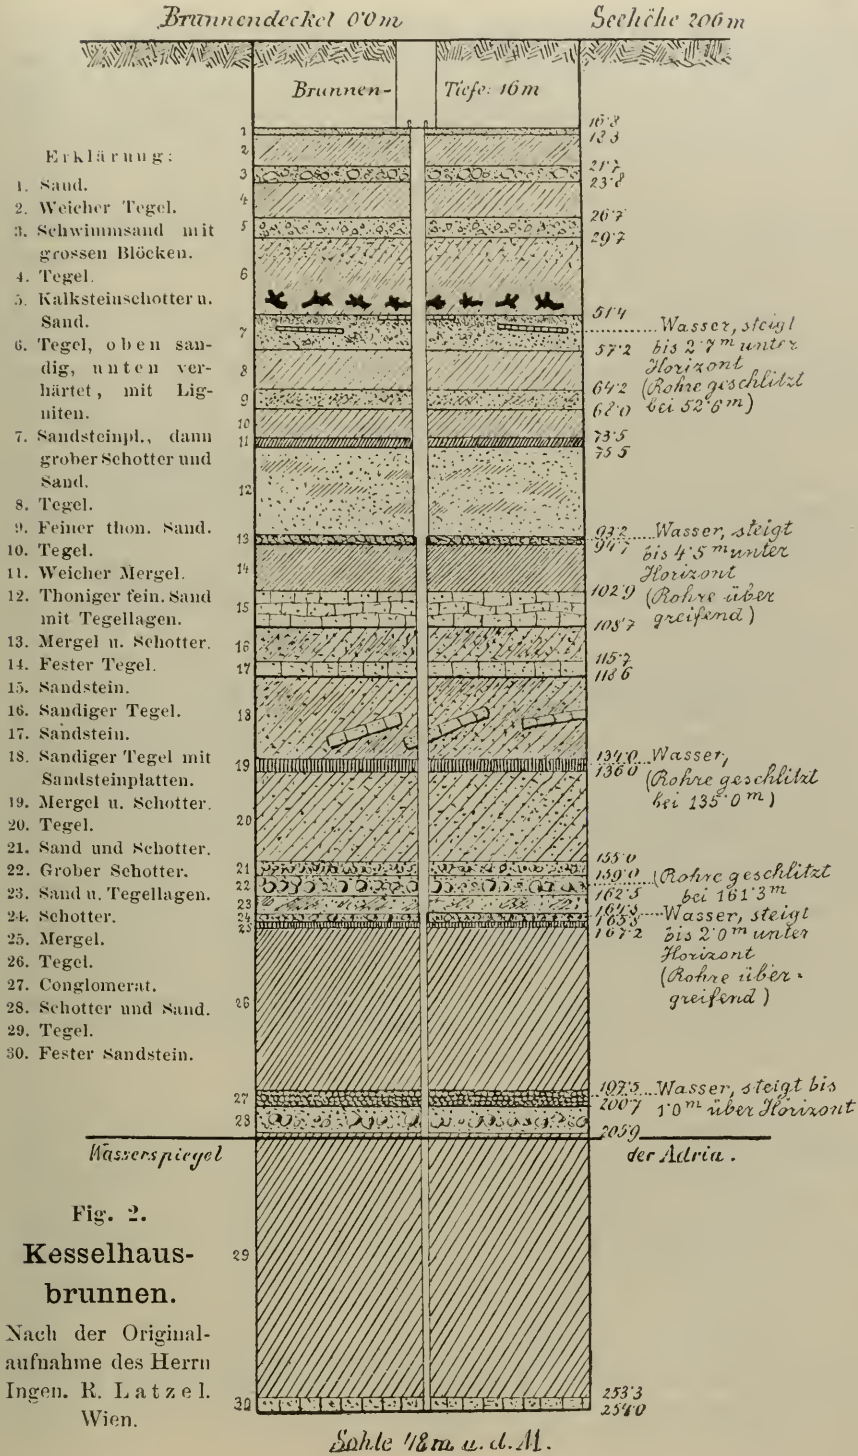 Brunnendeckel 0·0 m
Seehöhe 206 m
Brunnen- Tiefe: 16 m
Erklärung:
1. Sand.
2. Weicher Tegel.
3. Schwimmsand mit
grossen Blöcken.
4. Tegel.
5. Kalksteinschotter u.
Sand.
6. Tegel, oben san-
dig, unten ver-
härtet, mit Lig-
niten.
7. Sandsteinpl., dann
grober Schotter und
Sand.
8. Tegel.
9. Feiner thon. Sand.
10. Tegel.
11. Weicher Mergel.
12. Thoniger fein. Sand
mit Tegellagen.
13. Mergel u. Schotter.
14. Fester Tegel.
15. Sandstein.
16. Sandiger Tegel.
17. Sandstein.
18. Sandiger Tegel mit
Sandsteinplatten.
19. Mergel u. Schotter.
20. Tegel.
21. Sand und Schotter.
22. Grober Schotter.
23. Sand u. Tegellagen.
24. Schotter.
25. Mergel.
26. Tegel.
27. Conglomerat.
28. Schotter und Sand.
29. Tegel.
30. Fester Sandstein.
1
2
3
4
5
6
7
8
9
10
11
12
13
14
15
16
17
18
19
20
21
22
23
24
25
26
27
28
29
30
16·8
18·3
21·7
23·8
26·7
29·7
51·4
57·2
64·2
68·0
73·5
75·5
93·2
94·7
102·9
108·7
115·7
118·6
134·0
136·0
155·0
159·0
162·5
164·3
167·2
197·5
200·7
205·9
253·3
254·0
Wasser, steigt
bis 2·7 m unter
Horizont
(Rohre geschlitzt
bei 52·6 m)
Wasser, steigt
bis 4·5 m unter
Horizont
(Rohre über
greifend)
Wasser,
(Rohre geschlitzt
bei 135·0 m)
(Rohre geschlitzt
bei 161·3 m
Wasser, steigt
bis 2·0 m unter
Horizont
(Rohre über-
greifend)
Wasser, steigt bis
1·0 m über Horizont
Wasserspiegel
der Adria.
Fig. 2.
Kesselhaus-
brunnen.
Nach der Original-
aufnahme des Herrn
Ingen. R. Latzel.
Wien.
Sohle 48 m u. d. M.